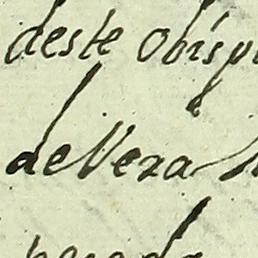 deste Obisp
de Vera